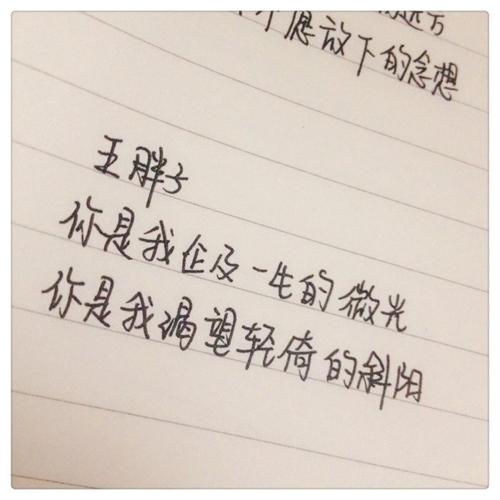 愿放下的念想
王胖子
你是我企及一生的微光
你是我渴望轻倚的斜阳